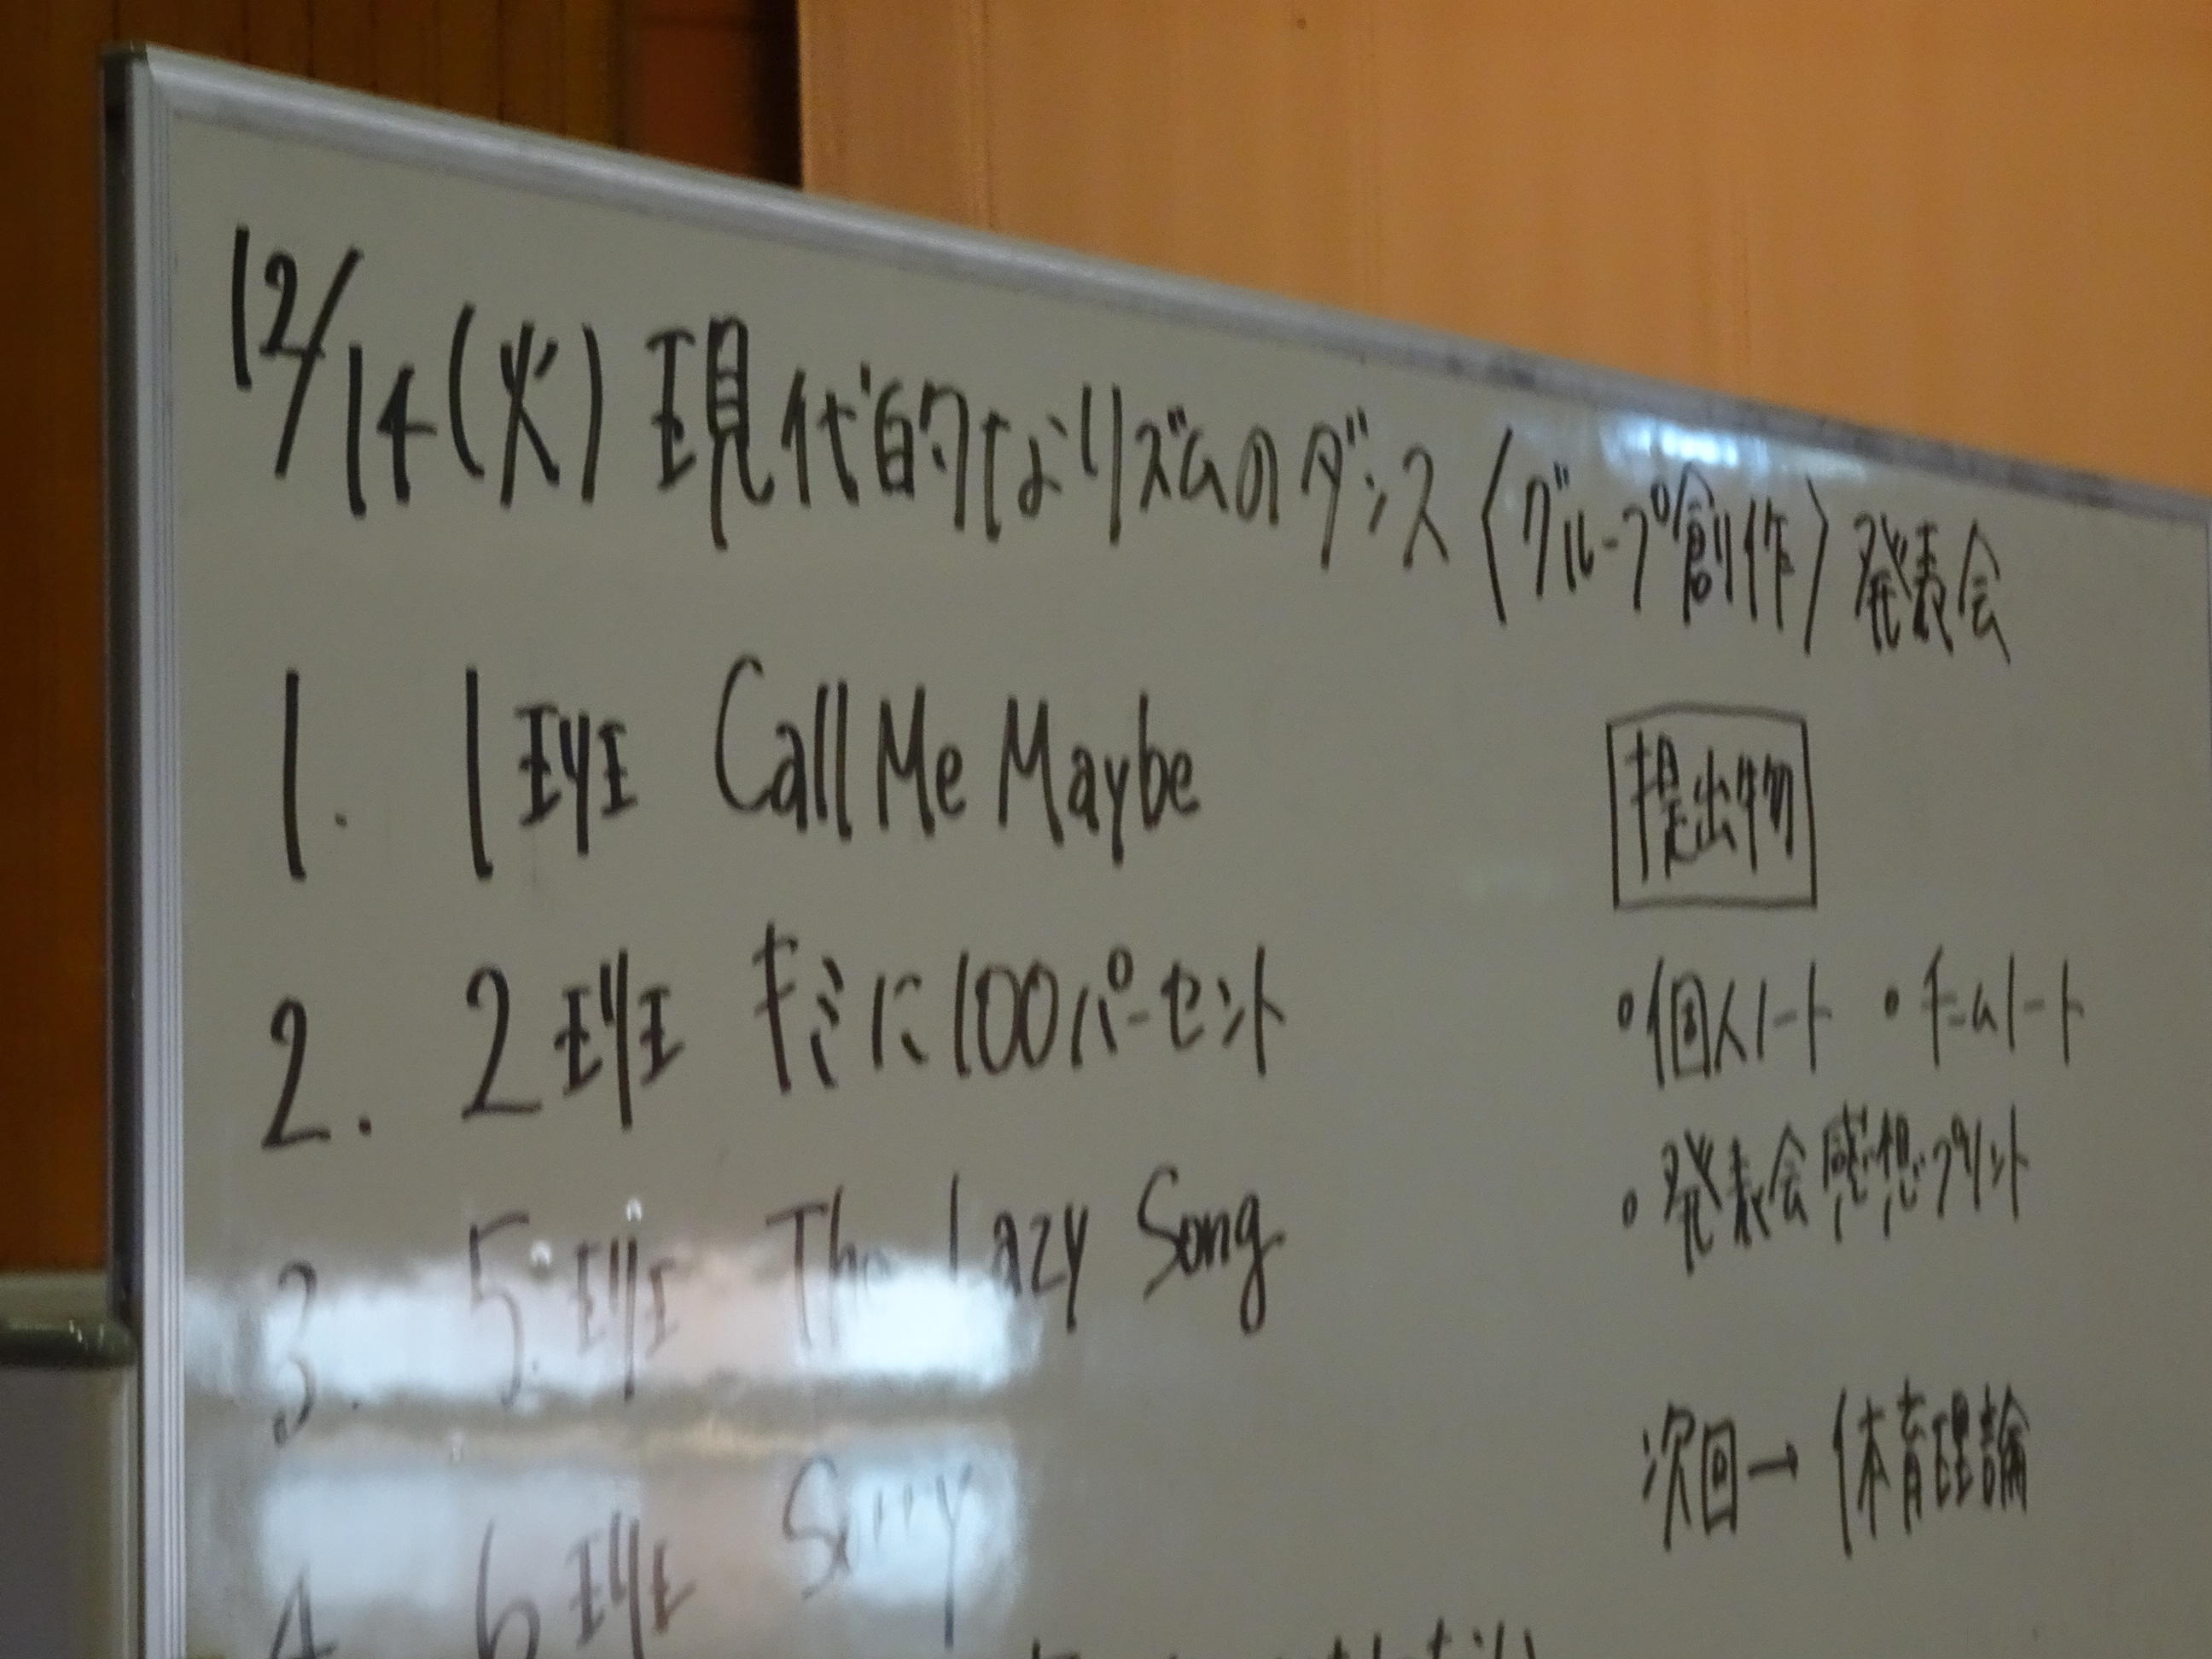 12/14(火) 現代的なリズムのダンス〈グループ創作〉発表会
1. 1班 Call Me Maybe
2. 2班 キミに100パーセント
3. 5班 The Lazy Song
4. 6班 Sorry
提出物
・個人ノート ・チームノート
・発表会感想プリント
次回→体育理論